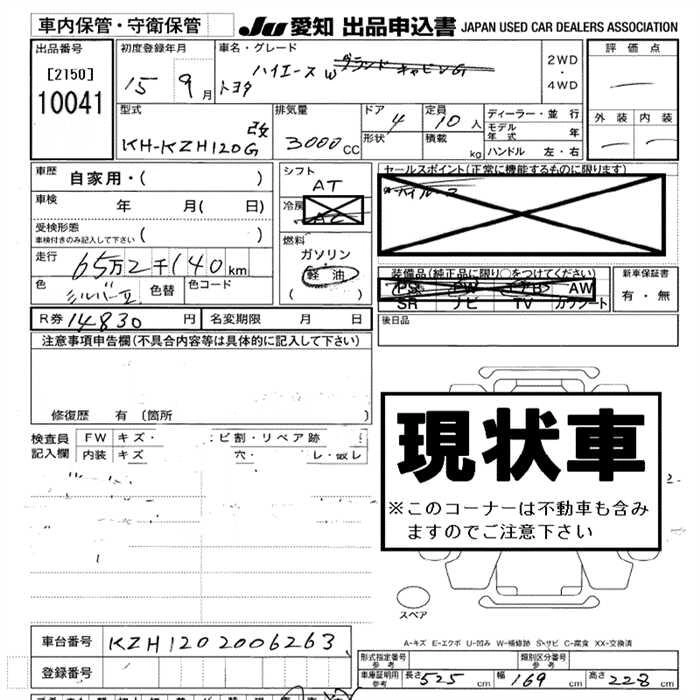 車内保管・守衛保管
JU 愛知 出品申込書 JAPAN USED CAR DEALERS ASSOCIATION
出品番号
[2150]
10041
初度登録年月
15 9月
車名・グレード
トヨタ ハイエース W グランドキャビンG
2WD
・
4WD
評価点
外装 内装
型式
KH-KZH120G 改
排気量
3000CC
ドア 4
形状
定員 10人
積載 kg
ディーラー・並行
モデル年式 年
ハンドル 左・右
車歴 自家用・( )
車検 年 月( 日)
受検形態
車検付きのみ記入して下さい ( )
走行 65万2千140km
色 シルバーII
色替
色コード
シフト
AT
冷房
AC
燃料
ガソリン
軽油
( )
セールスポイント(正常に機能するものに限ります)
ハイルーフ
装備品(純正品に限り○をつけてください)
PS PW AW
SR ナビ TV カワシート
新車保証書
有・無
後日品
R券 14830円
名変期限 月 日
注意事項申告欄(不具合内容等は具体的に記入して下さい)
修復歴 有 [箇所 ]
検査員
記入欄
FW キズ・ ビ割・リペア跡
内装 キズ・ 穴・
現状車
※このコーナーは不動車も含み
ますのでご注意下さい
スペア
A-キズ E-エクボ U-凹み W-補修跡 S-サビ C-腐食 XX-交換済
車台番号 KZH1202006263
登録番号
形式指定番号
参考
類別区分番号
参考
車庫証明用
参考
長さ 525cm 幅 169cm 高さ 228cm